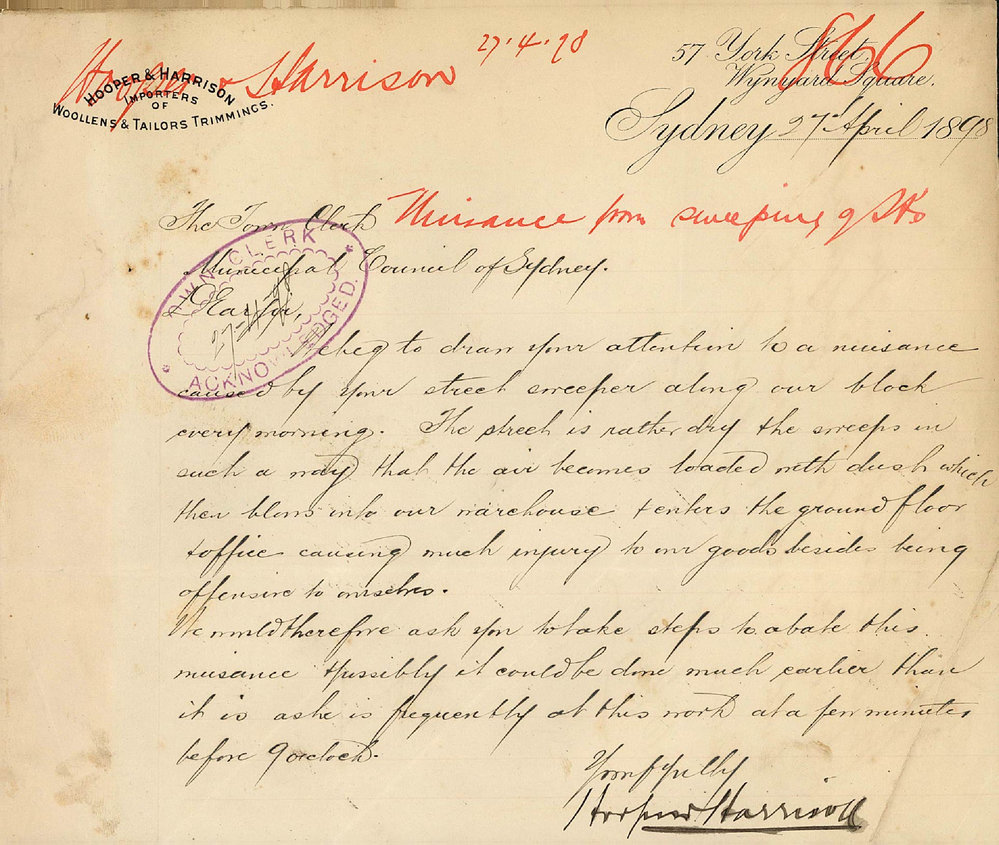 Hooper & Harrison
27.4.98
866
HOOPER & HARRISON
IMPORTERS
OF
WOOLLENS & TAILORS TRIMMINGS.
57 York Street,
Wynyard Square.
Sydney 27th April 1898
The Town Clerk
Nuisance from sweeping of Sts
Municipal Council of Sydney.
Dear Sir,
TOWN CLERK
27-4-98
ACKNOWLEDGED.
We beg to draw your attention to a nuisance
caused by your street sweeper along our block
every morning. The street is rather dry the sweeps in
such a way that the air becomes loaded with dust which
then blows into our warehouse & enters the ground floor
& office causing much injury to our goods besides being
offensive to ourselves.
We would therefore ask you to take steps to abate this
nuisance & possibly it could be done much earlier than
it is as he is frequently at this work at a few minutes
before 9 oclock.
Yours fflly
Hooper & Harrison